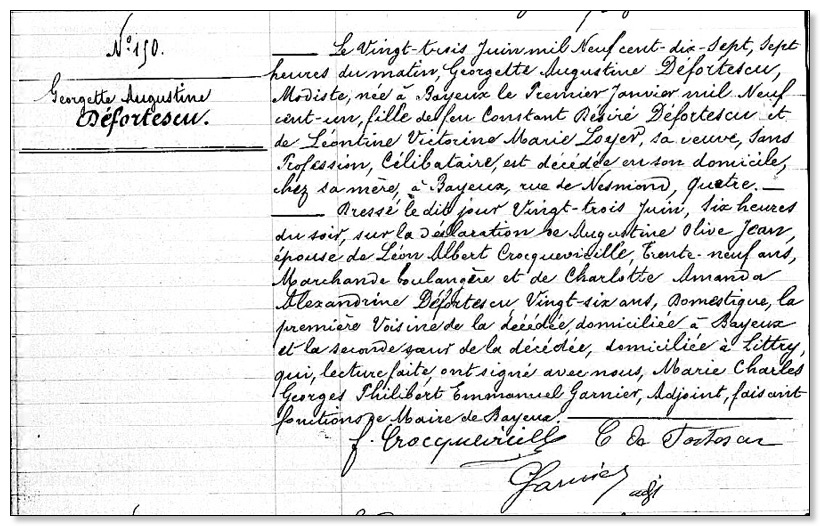 N° 150.
Georgette Augustine
Défortescu.
Le Vingt-trois Juin mil Neuf cent-dix-Sept, Sept
heures du matin, Georgette Augustine Défortescu,
Modiste, née à Bayeux le Premier Janvier mil Neuf
cent-un, fille de feu Constant Désiré Défortescu et
de Léontine Victorine Marie Loyer, sa veuve, Sans
Profession, Célibataire, est décédée en son domicile,
chez sa mère, à Bayeux, rue de Nesmond, quatre. —
Dressé le dit jour Vingt-trois Juin, Six heures
du soir, sur la déclaration de Augustine Olive Jean,
épouse de Léon Albert Crocquevieille, Trente-neuf ans,
Marchande boulangère et de Charlotte Amanda
Alexandrine Défortescu Vingt-six ans, Domestique, la
première Voisine de la décédée, domiciliée à Bayeux
et la seconde sœur de la décédée, domiciliée à Littry,
qui, lecture faite, ont signé avec nous, Marie Charles
Georges Philibert Emmanuel Garnier, Adjoint, faisant
fonctions de Maire de Bayeux.
f. Crocquevieille C de Fortescu
Garnier adj